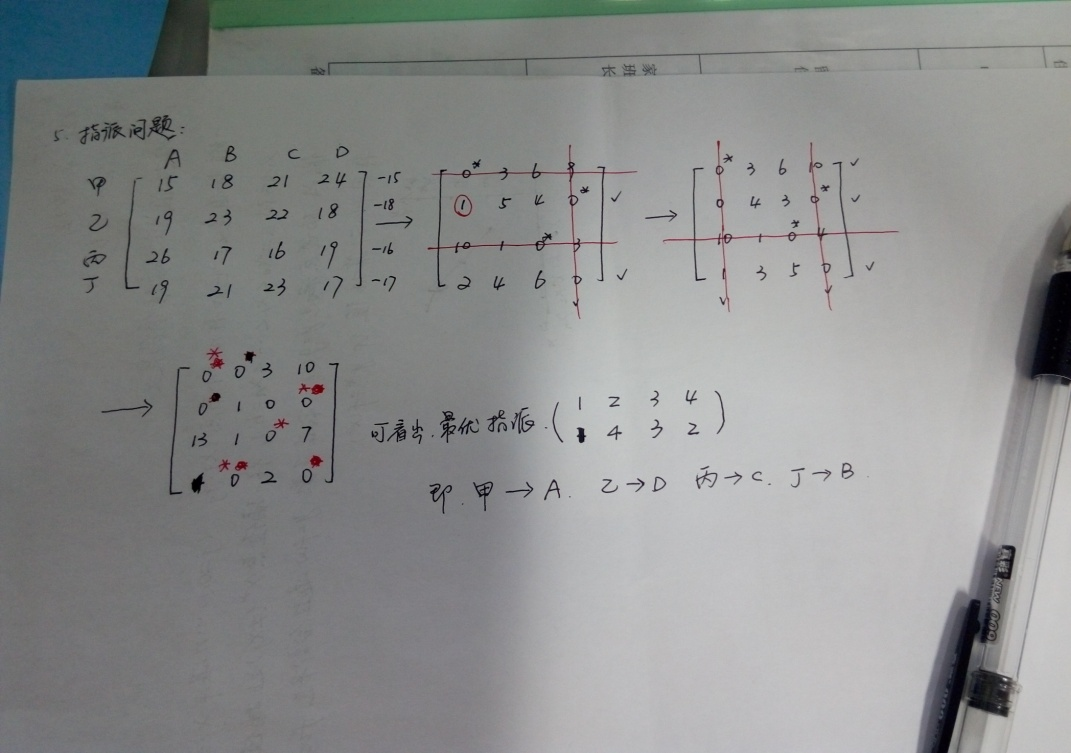 家班长
5. 指派问题:
A B C D
甲 15 18 21 24 -15
乙 19 23 22 18 -18
丙 26 17 16 19 -16
丁 19 21 23 17 -17
→
0* 3 6 9
① 5 4 0*
10 1 0* 3
2 4 6 0
→
0* 3 6 10
0 4 3 0*
10 1 0* 4
1 3 5 0
→
0* 0 3 10
0 1 0 0*
13 1 0* 7
0* 2 0
可看出.最优指派.(1 2 3 4
1 4 3 2)
即.甲→A. 乙→D 丙→C. 丁→B.